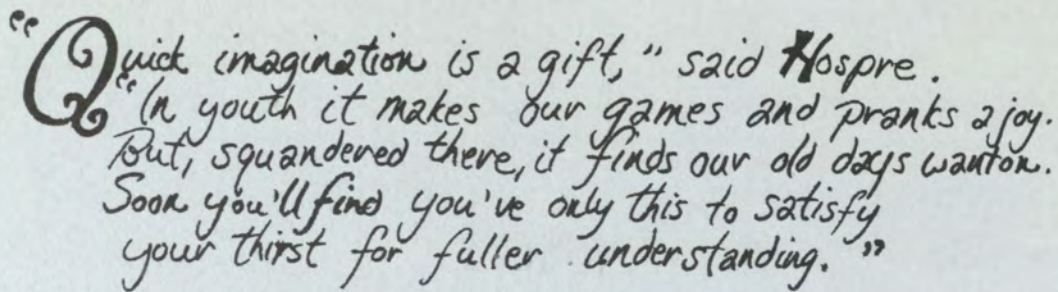 "Quick imagination is a gift," said Hospre.
"In youth it makes our games and pranks a joy.
But, squandered there, it finds our old days wanton.
Soon you'll find you've only this to satisfy
your thirst for fuller understanding."